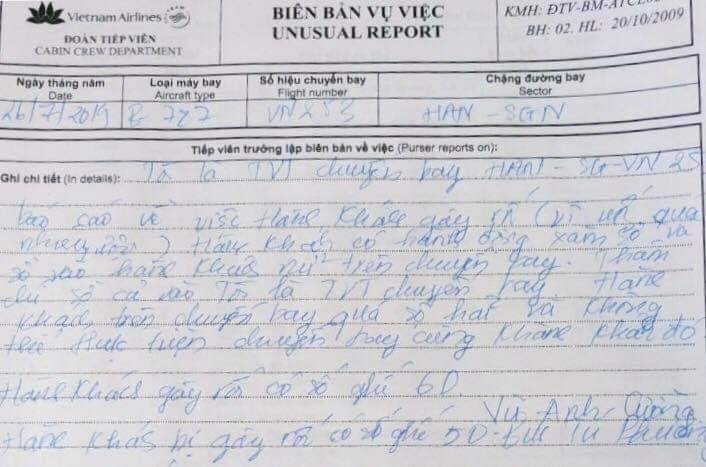 Vietnam Airlines
ĐOÀN TIẾP VIÊN
CABIN CREW DEPARTMENT
BIÊN BẢN VỤ VIỆC
UNUSUAL REPORT
KMH: ĐTV-BM-ATCL
BH: 02. HL: 20/10/2009
Ngày tháng năm
Date
Loại máy bay
Aircraft type
Số hiệu chuyến bay
Flight number
Chặng đường bay
Sector
26/7/2019
B 787
VN 253
HAN - SGN
Tiếp viên trưởng lập biên bản về việc (Purser reports on):
Ghi chi tiết (In details): Tôi là TVT chuyến bay HAN - SG - VN 25
báo cáo về việc Hành Khách gây rối (vì uống quá
nhiều rượu) Hành Khách có hành động xâm sờ và
sờ vào hành khách nữ trên chuyến bay. Thậm
chí sờ cả vào Tôi là TVT chuyến bay Hành
Khách trên chuyến bay quá sợ hãi và không
thể thực hiện chuyến bay cùng Khách đó
Hành Khách gây rối có số ghế 6D
Vũ Anh Cường
Hành Khách bị gây rối có số ghế 5D